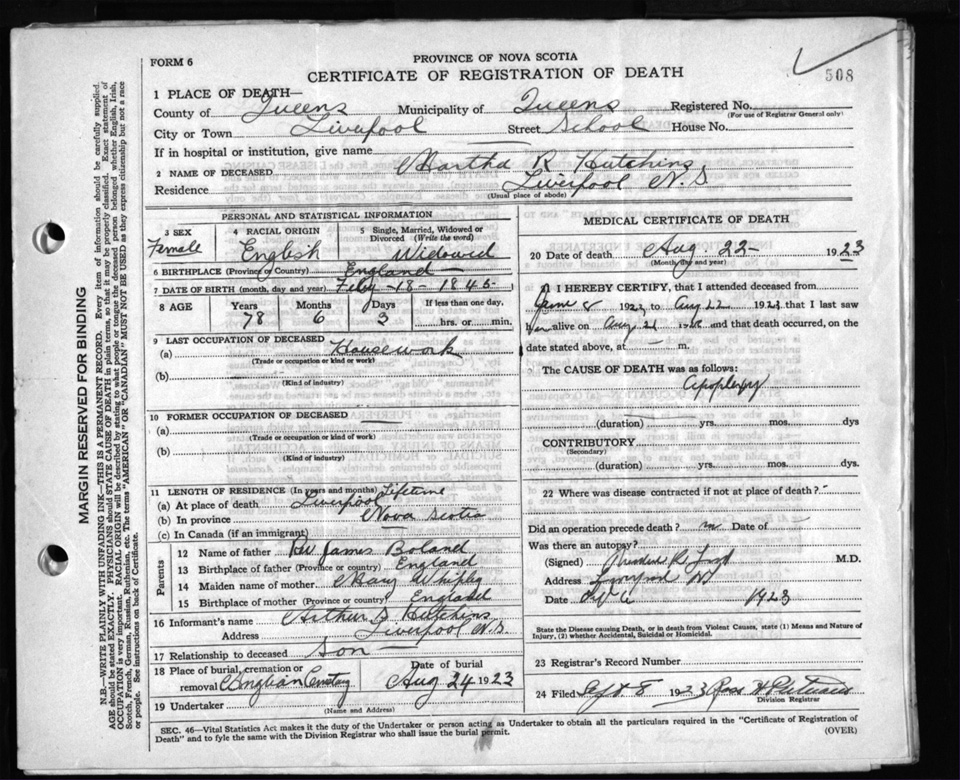 FORM 6
PROVINCE OF NOVA SCOTIA
CERTIFICATE OF REGISTRATION OF DEATH
508
1 PLACE OF DEATH—
County of Queens Municipality of Queens Registered No.
(For use of Registrar General only)
City or Town Liverpool Street School House No.
If in hospital or institution, give name
2 NAME OF DECEASED Martha R Hutchins
Residence Liverpool N.S
(Usual place of abode)
PERSONAL AND STATISTICAL INFORMATION
3 SEX Female
4 RACIAL ORIGIN English
5 Single, Married, Widowed or Divorced (Write the word) Widowed
6 BIRTHPLACE (Province or Country) England
7 DATE OF BIRTH (month, day and year) Feby -18- 1845-
8 AGE Years 78 Months 6 Days 3 If less than one day, hrs. or min.
9 LAST OCCUPATION OF DECEASED
(a) Housework
(Trade or occupation or kind or work)
(b)
(Kind of industry)
10 FORMER OCCUPATION OF DECEASED
(a)
(Trade or occupation or kind of work)
(b)
(Kind of industry)
11 LENGTH OF RESIDENCE (In years and months) Lifetime
(a) At place of death Liverpool
(b) In province Nova Scotia
(c) In Canada (if an immigrant)
Parents
12 Name of father James Boland
13 Birthplace of father (Province or country) England
14 Maiden name of mother Mary
15 Birthplace of mother (Province or Country) England
16 Informant's name Arthur Hutchins
Address Liverpool N.S.
17 Relationship to deceased Son
18 Place of burial, cremation or removal Date of burial Aug 24 1923
19 Undertaker
(Name and Address)
MEDICAL CERTIFICATE OF DEATH
20 Date of death Aug 22- 1923
(Month, day and year)
I HEREBY CERTIFY, that I attended deceased from
June 1923 to Aug 22 1923 that I last saw
her alive on Aug 21 and that death occurred, on
the date stated above, at — m.
The CAUSE OF DEATH was as follows:
Apoplexy
(duration) yrs. mos. dys
CONTRIBUTORY
(Secondary)
(duration) yrs. mos. dys.
22 Where was disease contracted if not at place of death?
Did an operation precede death? Date of
Was there an autopsy?
(Signed) M.D.
Address
Date 1923
State the Disease causing Death, or in death from Violent Causes, state (1) Means and Nature of
Injury, (2) whether Accidental, Suicidal or Homicidal.
23 Registrar's Record Number
24 Filed Sept 8 1923 Ross
Division Registrar
SEC. 46—Vital Statistics Act makes it the duty of the Undertaker or person acting as Undertaker to obtain all the particulars required in the "Certificate of Registration of
Death" and to fyle the same with the Division Registrar who shall issue the burial permit.
(OVER)
MARGIN RESERVED FOR BINDING
N.B.—WRITE PLAINLY WITH UNFADING INK—THIS IS A PERMANENT RECORD. Every item of information should be carefully supplied.
AGE should be stated EXACTLY. PHYSICIANS should STATE CAUSE OF DEATH in plain terms, so that it may be properly classified. Exact statement of
OCCUPATION is very important. RACIAL ORIGIN will be described by stating to what people or tongue the deceased person belonged whether English, Irish,
Scotch, French, German, Russian, Ruthenian, etc. The terms "AMERICAN" OR "CANADIAN" MUST NOT BE USED as they express citizenship but not a race
or people. See instructions on back of Certificate.